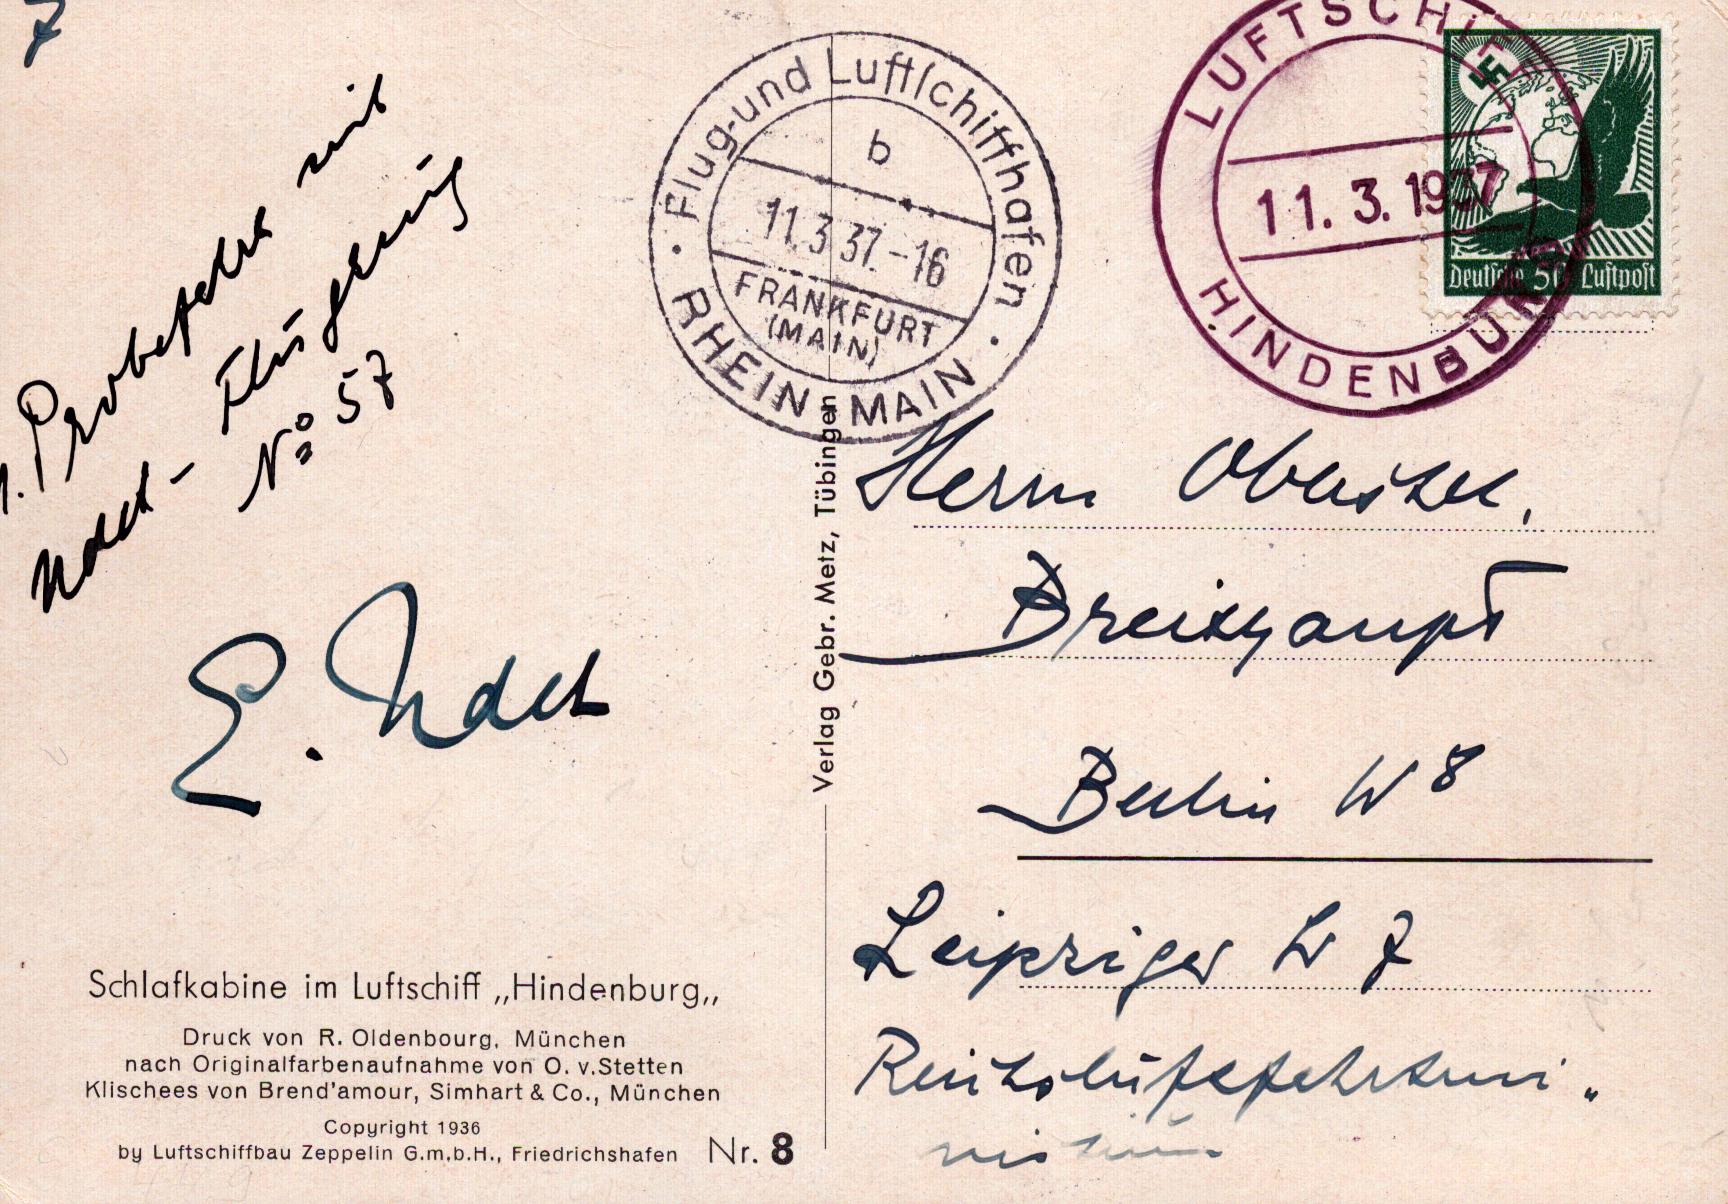 1. Probefahrt mit
Udet- Flugzeug
No 57
E. Udet
Schlafkabine im Luftschiff „Hindenburg„
Druck von R. Oldenbourg, München
nach Originalfarbenaufnahme von O. v. Stetten
Klischees von Brend'amour, Simhart & Co., München
Copyright 1936
by Luftschiffbau Zeppelin G.m.b.H., Friedrichshafen
Nr. 8
Verlag Gebr. Metz, Tübingen
Flug-und Luftschiffhafen
b
11.3.37.-16
FRANKFURT
(MAIN)
RHEIN-MAIN
LUFTSCHIFF
11. 3. 1937
HINDENBURG
Deutsche 50 Luftpost
Herrn
Breithaupt
Berlin W 8
Leipziger 7
Reichsluftfahrtmi„